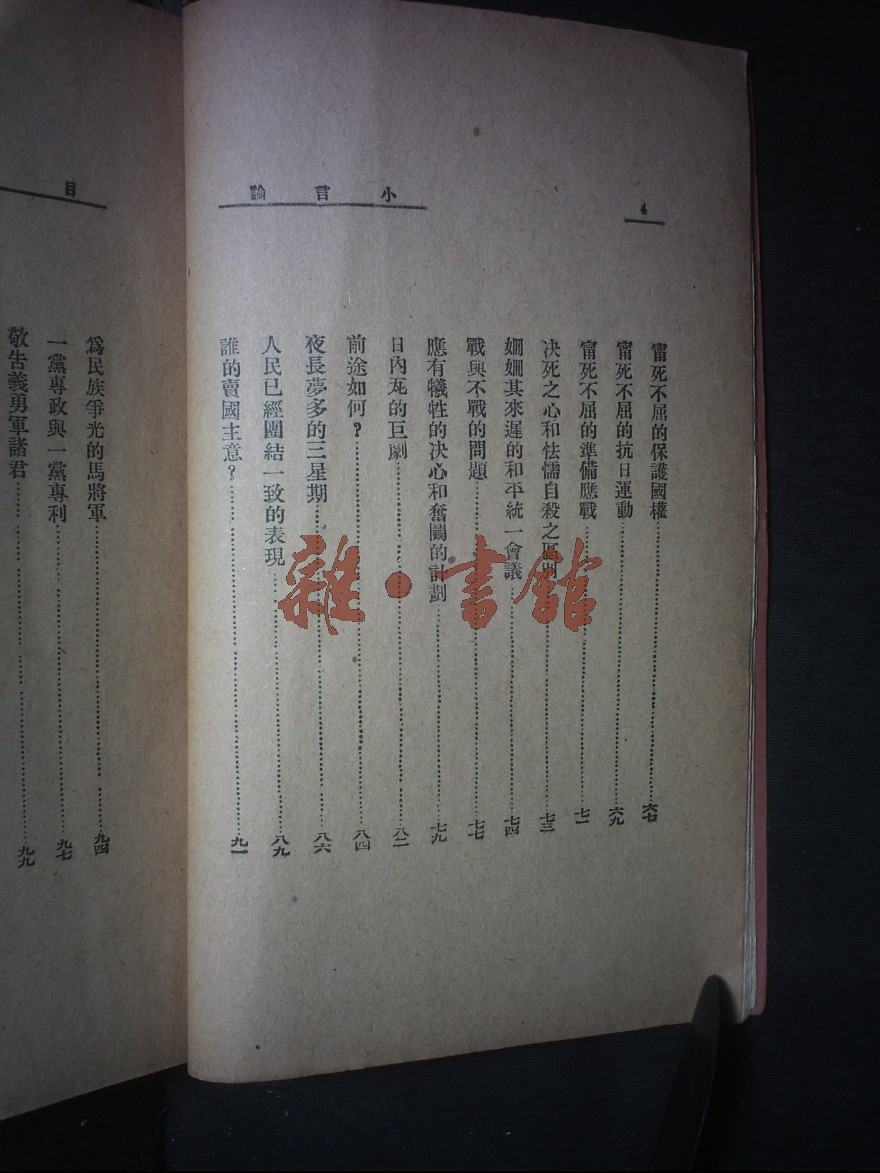 小言論
4
甯死不屈的保護國權……六七
甯死不屈的抗日運動……六九
甯死不屈的準備應戰……七一
决死之心和怯懦自殺之區別……七三
姍姍其來遲的和平統一會議……七四
戰與不戰的問題……七七
應有犧牲的决心和奮鬭的計劃……七九
日內瓦的巨劇……八二
前途如何？……八四
夜長夢多的三星期……八六
人民已經團結一致的表現……八九
誰的賣國主意？……九一
目
爲民族爭光的馬將軍……九四
一黨專政與一黨專利……九七
敬告義勇軍諸君……九九
雜·書館